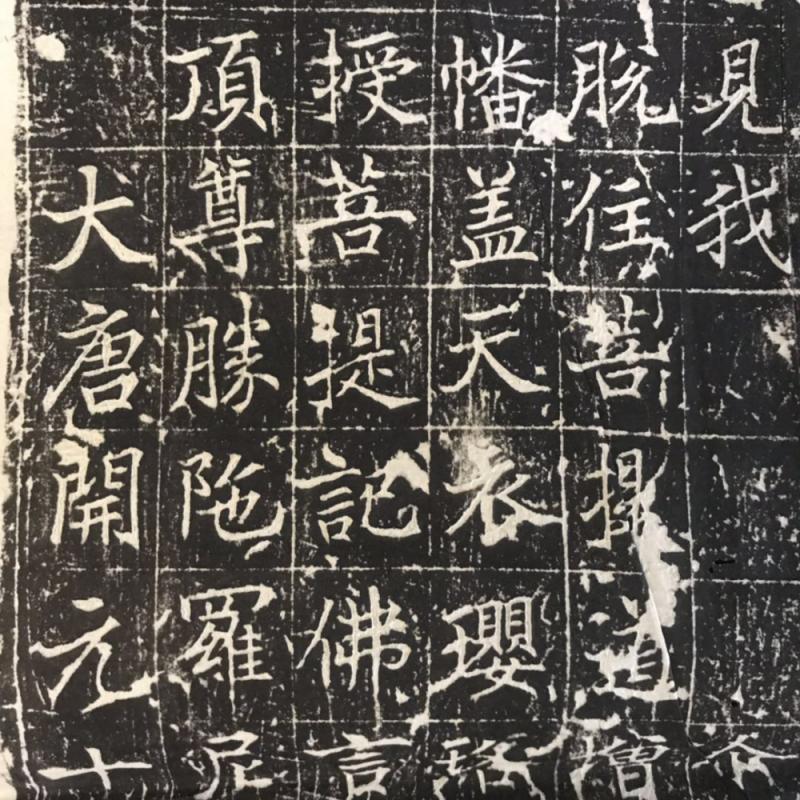 見我
脱住菩提道增
幡盖天衣瓔珞
授菩提記佛言
頂尊勝陁羅尼
大唐開元十